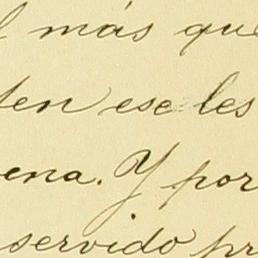 más que
ten ese les
ena. Y por
servido pr